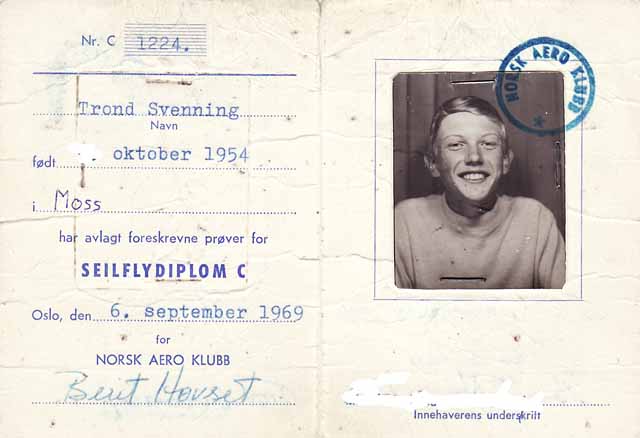 Nr. C 1224.
Trond Svenning
Navn
født oktober 1954
i Moss
har avlagt foreskrevne prøver for
SEILFLYDIPLOM C
Oslo, den 6. september 1969
for
NORSK AERO KLUBB
Berit Hovset
NORSK AERO KLUBB
Innehaverens underskrift